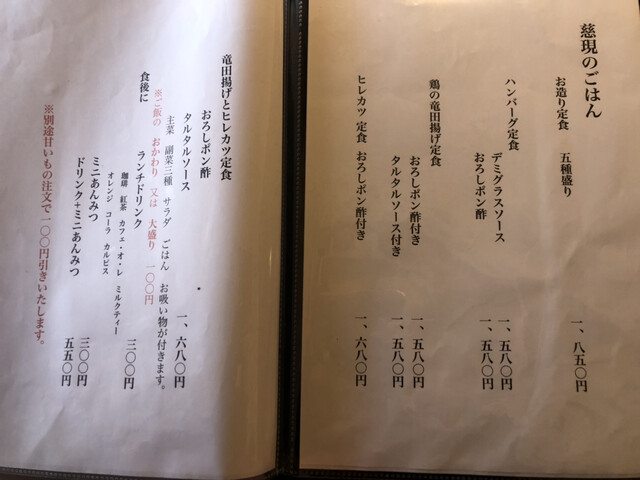 慈現のごはん
お造り定食 五種盛り 一、八五〇円
ハンバーグ定食
デミグラスソース 一、五八〇円
おろしポン酢 一、五八〇円
鶏の竜田揚げ定食
おろしポン酢付き 一、五八〇円
タルタルソース付き 一、五八〇円
ヒレカツ 定食 おろしポン酢付き 一、六八〇円
竜田揚げとヒレカツ定食
おろしポン酢
タルタルソース 一、六八〇円
主菜 副菜三種 サラダ ごはん お吸い物が付きます。
※ご飯の おかわり 又は 大盛り 一〇〇円
食後に
ランチドリンク 三〇〇円
珈琲 紅茶 カフェ・オ・レ ミルクティー
オレンジ コーラ カルピス
ミニあんみつ 三〇〇円
ドリンク+ミニあんみつ 五五〇円
※別途甘いもの注文で一〇〇円引きいたします。